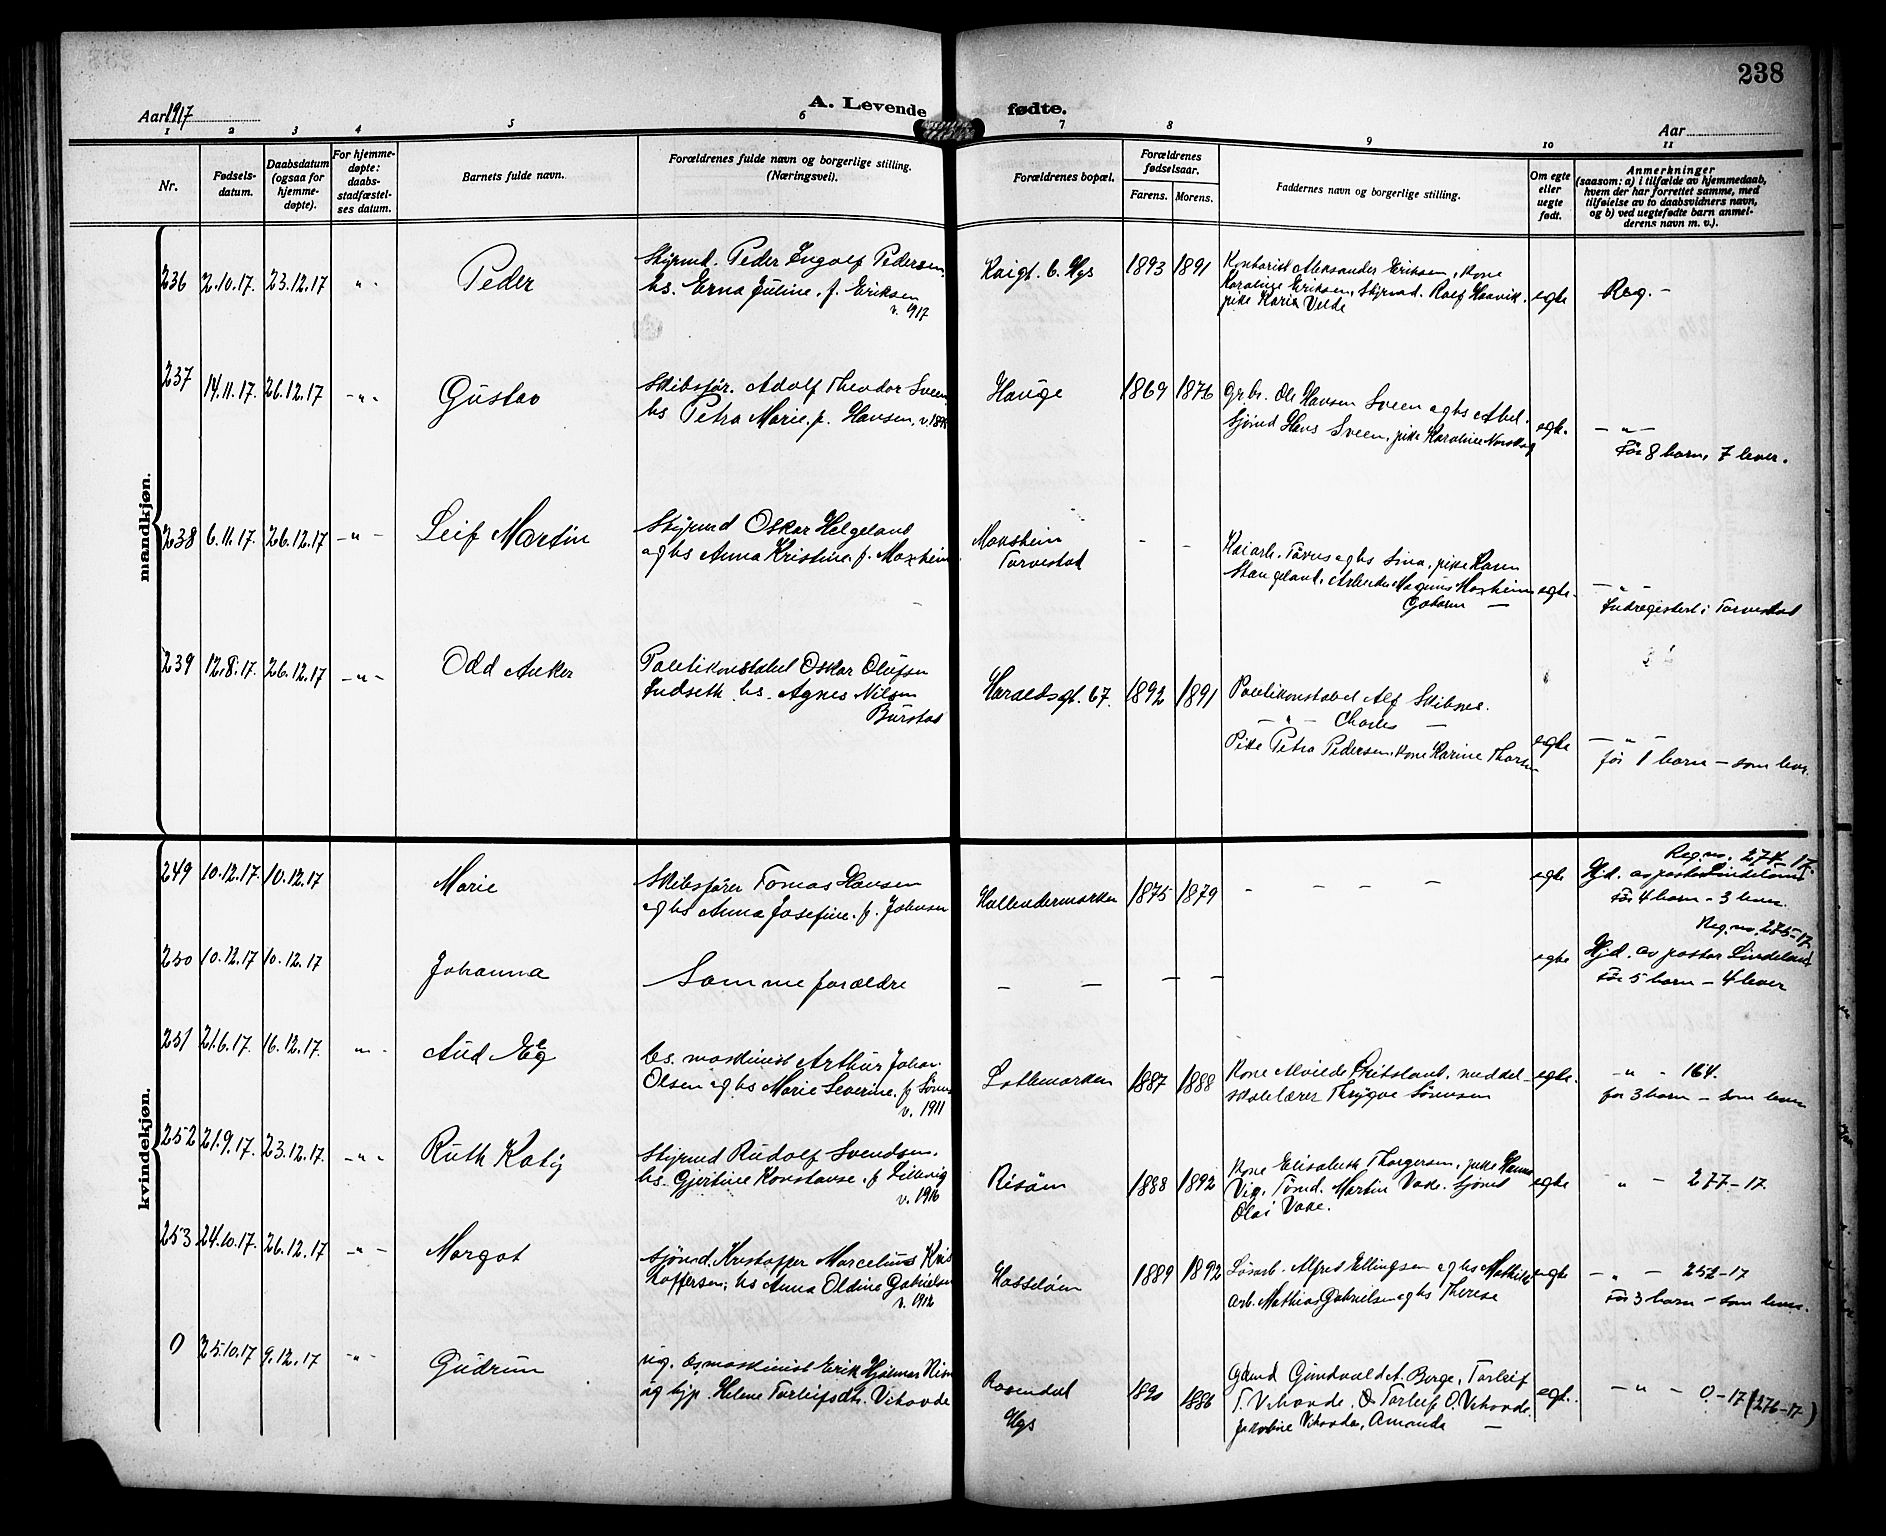 238
Aar 1917
A. Levende fødte.
Aar
1 2 3 4 5 6 7 8 9 10 11
Nr.
Fødsels-
datum.
Daabsdatum
(ogsaa for
hjemme-
døpte).
For hjemme-
døpte:
daabs-
stadfæstel-
ses datum.
Barnets fulde navn.
Forældrenes fulde navn og borgerlige stilling.
(Næringsvei).
Forældrenes bopæl.
Forældrenes
fødselsaar.
Farens. Morens.
Faddernes navn og borgerlige stilling.
Om egte
eller
uegte
født.
Anmerkninger
(saasom: a) i tilfælde av hjemmedaab,
hvem der har forrettet samme, med
tilføielse av to daabsvidners navn,
og b) ved uegtefødte barn anmel-
derens navn m. v.).
mandkjøn.
236 2.10.17. 23.12.17 " - Peder
Styrmd. Peder Ingolf Pedersen
hs. Erna Juline. f. Eriksen
v. 917
Kaigt. 6. Hgs 1893 1891
Kontorist Aleksander Eriksen, kone
Karoline Eriksen, Styrmd. Rolf Haavik.
pike Karia Velde
egte Reg. -
237 14.11.17. 26.12.17 - " - Gustav
Skibsfør. Adolf Theodor Sveen
hs Petra Marie. f. Hansen, v. 189
Hauge 1869 1876
Grbr. Ole Hansen Sveen og hs Abel.
Sjømd Hans Sveen, pike Karoline
egte. - " -
Før 8 barn, 7 lever.
238 6.11.17. 26.12.17 - " - Leif Martin
Styrmd Oskar Helgeland
og hs Anna Kristine. f. Moxheim
Moksheim
Torvestad
- -
Kaiarb. Tønnes og hs Sina, pike Karen
Stangeland, Arbeider Magnus Moxheim
egte. - " -
Indregistert i Torvestad
239 12.8.17. 26.12.17 - " - Odd Anker
Politikonstabel Oskar Olufsen
Indseth hs. Agnes Nilsen
Burstad
Haraldsgt. 67. 1892 1891
Politikonstabel Alf Skibnes.
- " - Charles -
Pike Petra Pedersen, kone Karine Thorsen
egte - " -
før 1 barn - som lever.
kvindekjøn.
249 10.12.17 10.12.17 Marie
Skibsfører Tomas Hansen
og hs Anna Josefine. f. Johnsen
Hollendermarken 1875 1879 - - - -
egte
Reg. no. 274-17.
Hjd. av pastor Lindeland
Før 4 barn - 3 lever.
250 10.12.17 10.12.17 Johanna
Samme forældre
- - - -
egte
Reg. no. 275-17
Hjd. av pastor Lindeland
Før 5 barn - 4 lever
251 21.6.17. 16.12.17. " - Aud Eg
hs. maskinist Arthur Johan
Olsen og hs Marie Severine. f Søren
v. 1911
Lothemarken 1887 1888
Kone Alvilde , meddel-
skolelærer Thrygve Sørensen
egte. - " - 164.
før 3 barn - som lever
252 21.9.17. 23.12.17. - " - Ruth Katy
Styrmd Rudolf Svendsen.
hs. Gjertine Konstanse. f Lillevig
v. 1916
Risøen 1888 1892
Kone Elisabeth Thorgersen, pike Hanna
Vig. Tømd. Martin Vake. Sjømd
Olai Vake.
egte " - 277-17
253 24.10.17. 26.12.17 - " - Margot
sjømd. Kristoffer Marcelius Kris
toffersen; hs Anna Oldine Gabrielsen
v. 1912
Hasseløen 1889 1892
Løsarb. Alfred Ellingsen og hs Mathilde
arb. Mathias Gabrielsen og hs Therese
egte - " - 252-17
Før 3 barn - som lever.
0 25.10.17 9.12.17 - " - Gudrun
ug. maskinist Erik Hjalmar
og hjp. Helene Torleifsdtr. Vihovde
Rosendal
Hgs
1890 1886
Gdmd Gundvald A. Berge, Torleif
T. Vihovde, Torleif O. Vihovde.
Jakobine Vihovde, Amanda -
egt. - " - 0-17 (276-17)